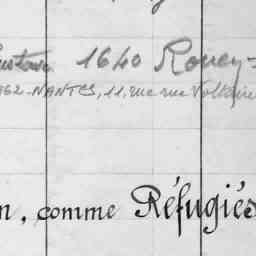 1640 Rouen-
962-NANTES, 11, rue rue Voltaire
n, comme Réfugiés